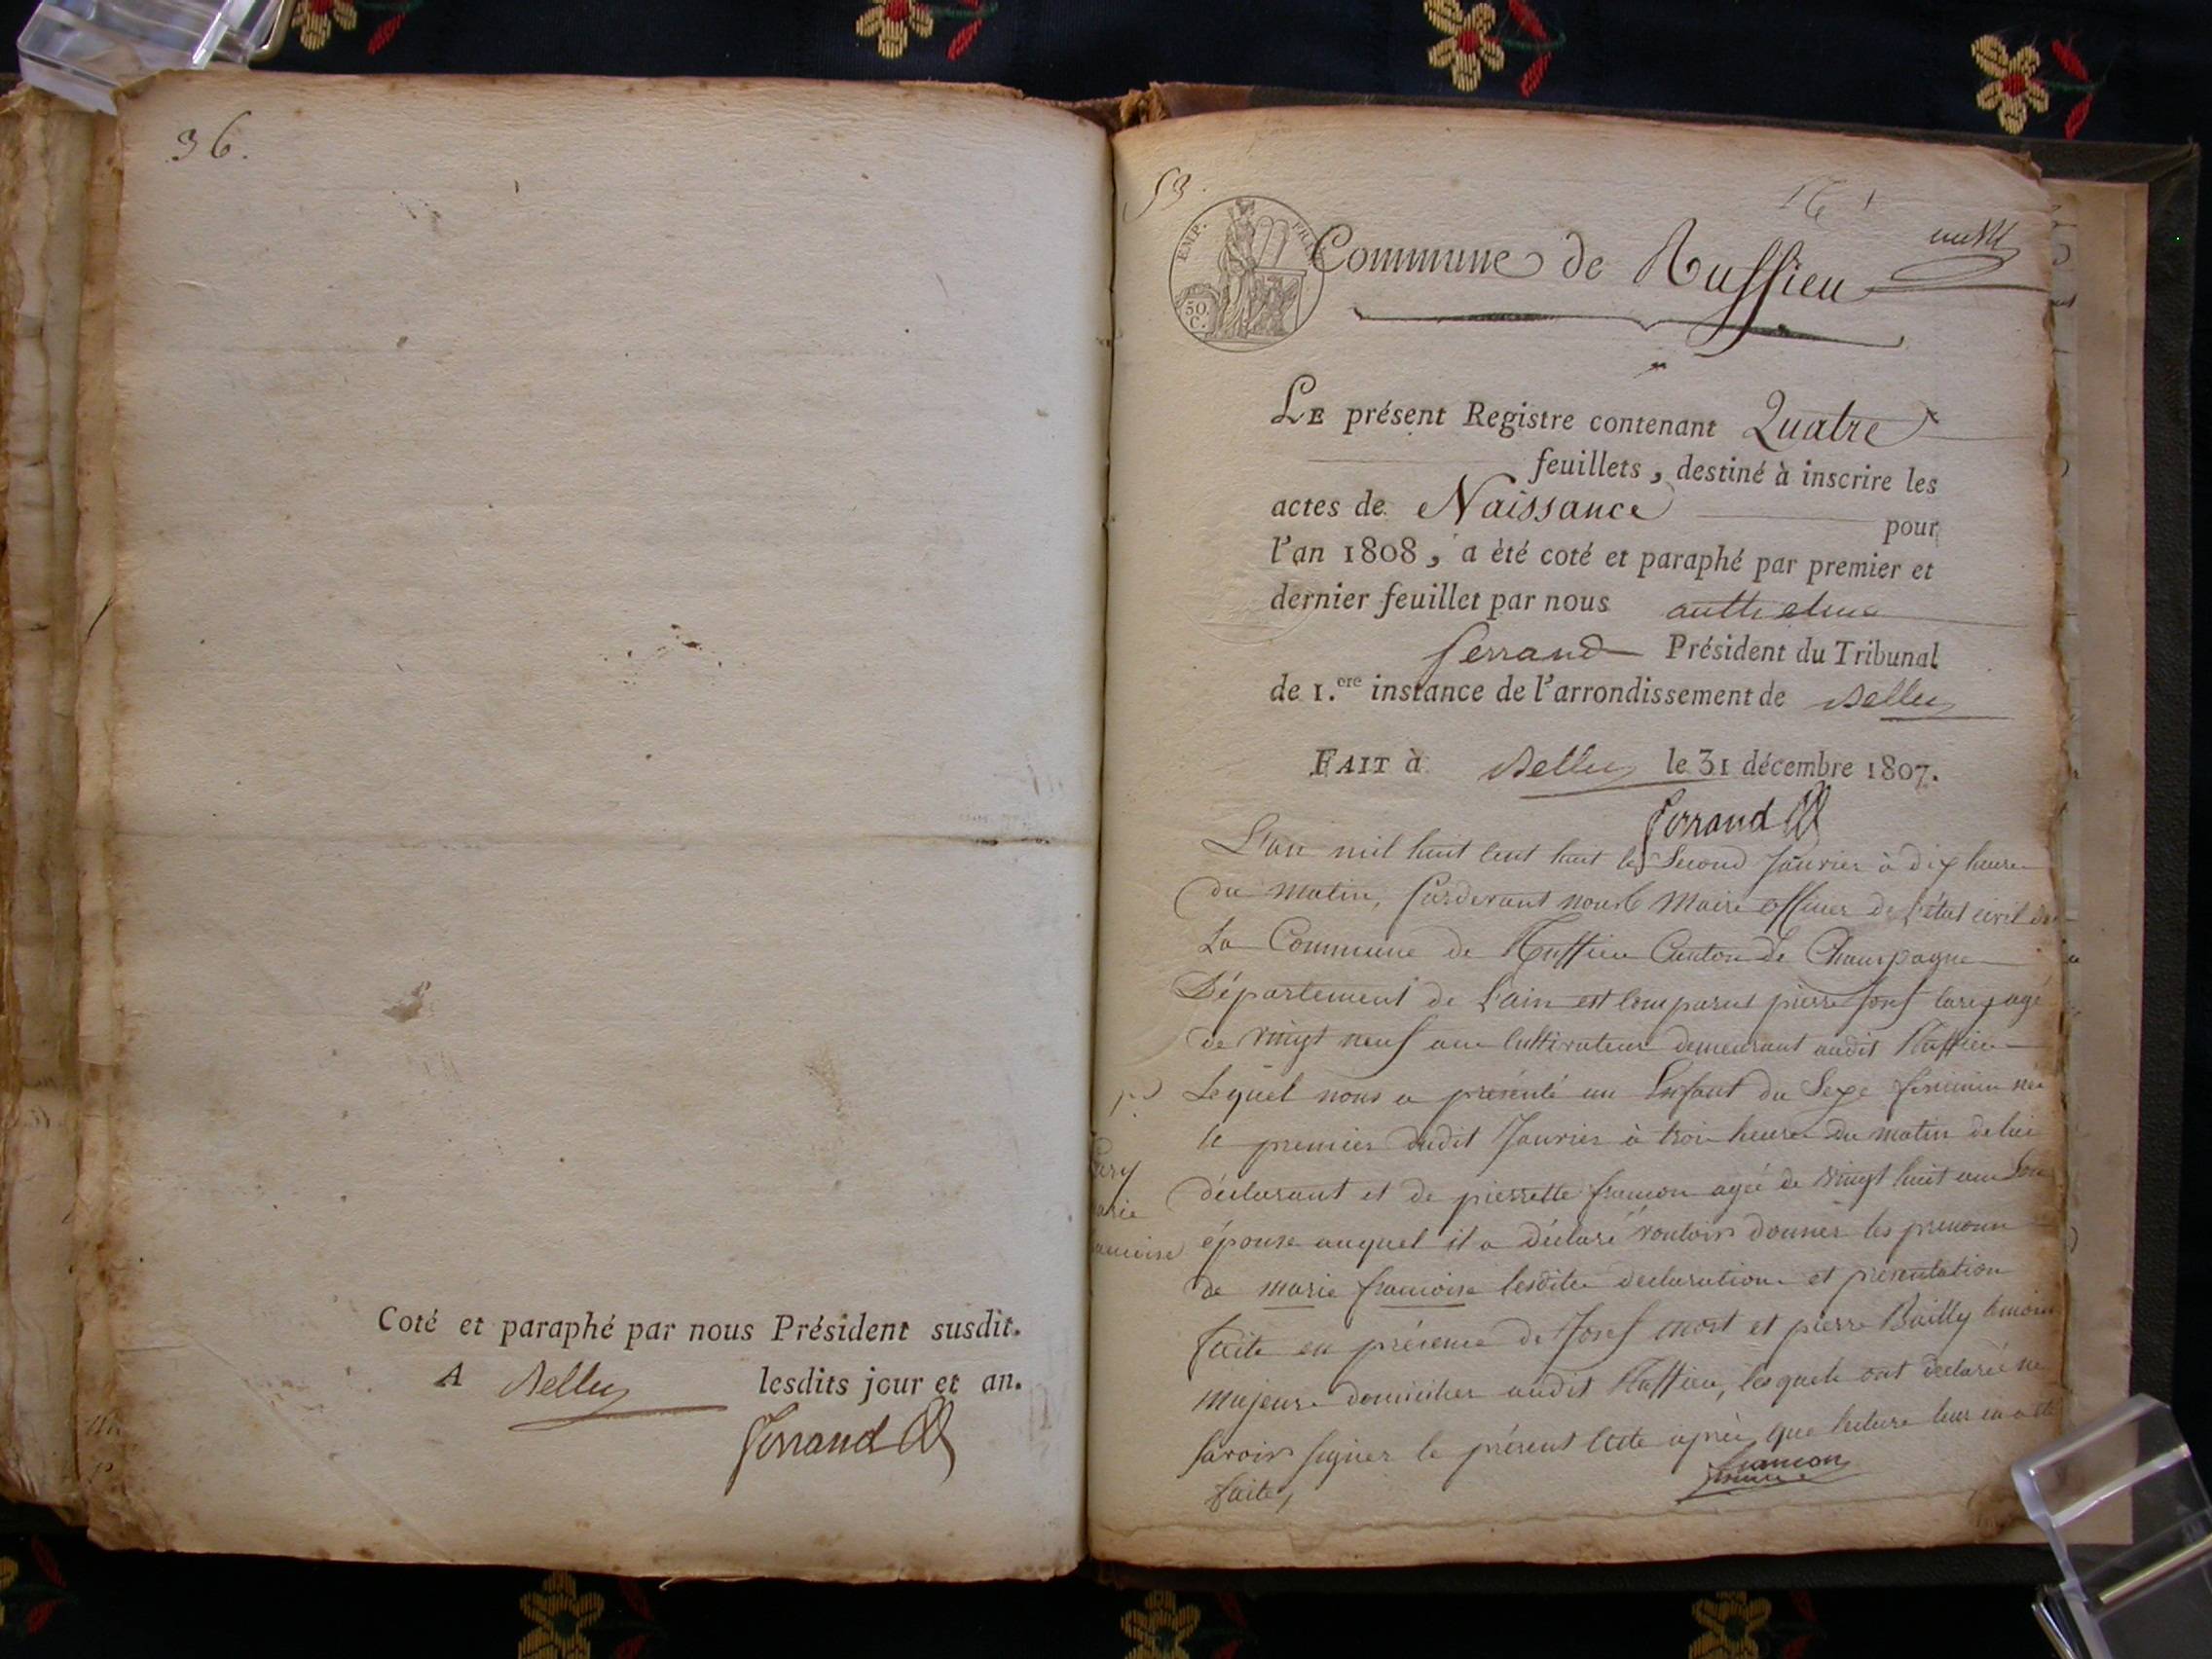 36.
Coté et paraphé par nous Président susdit.
A Belley lesdits jour et an.
Ferrand
53.
EMP. FRAN
50 C.
Commune de Ruffieu
Le présent Registre contenant Quatre
feuillets, destiné à inscrire les
actes de Naissance pour
l'an 1808, a été coté et paraphé par premier et
dernier feuillet par nous anthelme
ferrand Président du Tribunal
de 1.ere instance de l'arrondissement de Belley
Fait à Belley le 31 décembre 1807.
Ferrand
L'an mil huit cent huit le Second Janvier à dix heures
du matin, pardevant nous Maire officier de l'état civil de
La Commune de Ruffieu Canton de Champagne
Département de l'ain est comparut pierre josef lary agé
de vingt neuf ans cultivateur demeurant audit Ruffieu
Lequel nous a présenté un Enfant du Sexe féminin née
le premier dudit Janvier à trois heures du matin de lui
déclarant et de pierrette françon agée de vingt huit ans Son
épouse auquel il a déclaré vouloir donner les prenoms
de marie francoise lesdites declarations et présentation
faite en présence de Josef mort et pierre Bailly témoins
majeurs domiciliés audit Ruffieu, lesquels ont declaré ne
savoir signer le présent Acte après que lecture leur en a été
faite,
françon
maire
1.er
Lary
marie
francoise